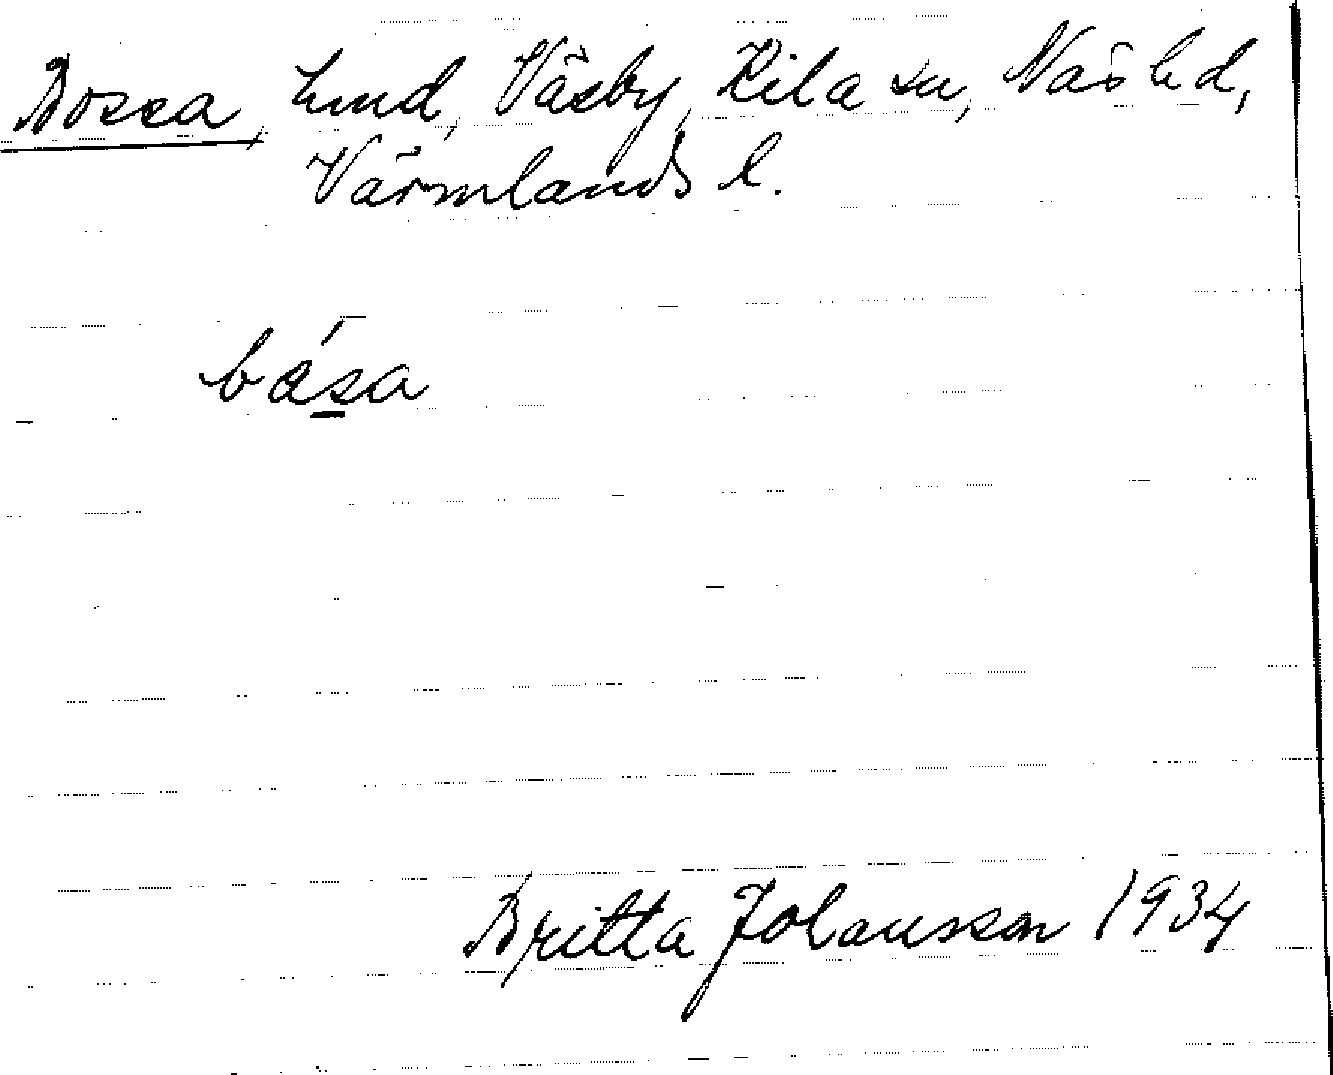 Bossa, lind, Väsby, Kila sn, Näs hd,
Värmlands l.
bása
Britta Johansson 1934